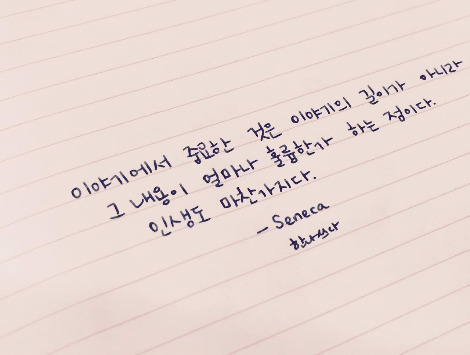 이야기에서 중요한 것은 이야기의 길이가 아니라
그 내용이 얼마나 훌륭한가 하는 점이다.
인생도 마찬가지다.
- Seneca
하나쓰다